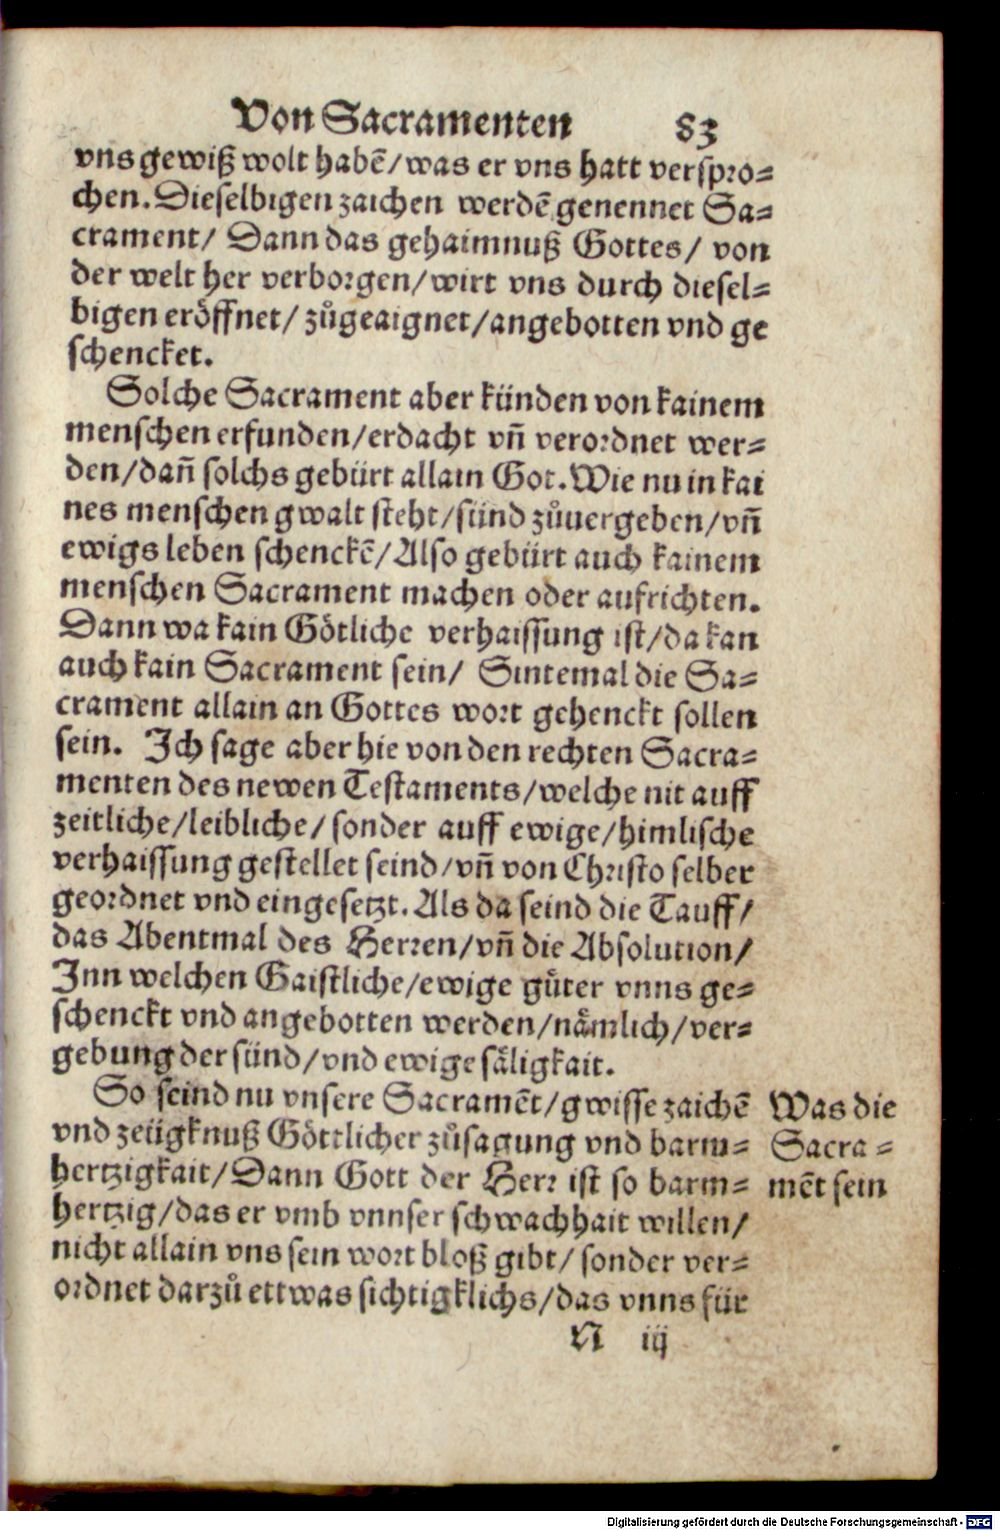 Von Sacramenten 83
vns gewiß wolt habē/was er vns hatt verspro=
chen. Dieselbigen zaichen werdē genennet Sa=
crament/ Dann das gehaimnuß Gottes/ von
der welt her verborgen/wirt vns durch diesel=
bigen eröffnet/ zůgeaignet/angebotten vnd ge
schencket.
Solche Sacrament aber künden von kainem
menschen erfunden/erdacht vñ verordnet wer=
den/dañ solchs gebürt allain Got. Wie nu in kai
nes menschen gwalt steht/sünd zůuergeben/vñ
ewigs leben schenckē/Also gebürt auch kainem
menschen Sacrament machen oder aufrichten.
Dann wa kain Götliche verhaissung ist/da kan
auch kain Sacrament sein/ Sintemal die Sa=
crament allain an Gottes wort gehenckt sollen
sein. Ich sage aber hie von den rechten Sacra=
menten des newen Testaments/welche nit auff
zeitliche/leibliche/ sonder auff ewige/himlische
verhaissung gestellet seind/vñ von Christo selber
geordnet vnd eingesetzt. Als da seind die Tauff/
das Abentmal des Herren/vñ die Absolution/
Inn welchen Gaistliche/ewige gůter vnns ge=
schenckt vnd angebotten werden/nämlich/ver=
gebung der sünd/vnd ewige säligkait.
So seind nu vnsere Sacramēt/gwisse zaichē
vnd zeügknuß Göttlicher zůsagung vnd barm=
hertzigkait/Dann Gott der Herr ist so barm=
hertzig/das er vmb vnnser schwachhait willen/
nicht allain vns sein wort bloß gibt/ sonder ver=
ordnet darzů ettwas sichtigklichs/das vnns für
Was die
Sacra=
mēt sein
N iij
Digitalisierung gefördert durch die Deutsche Forschungsgemeinschaft - DFG